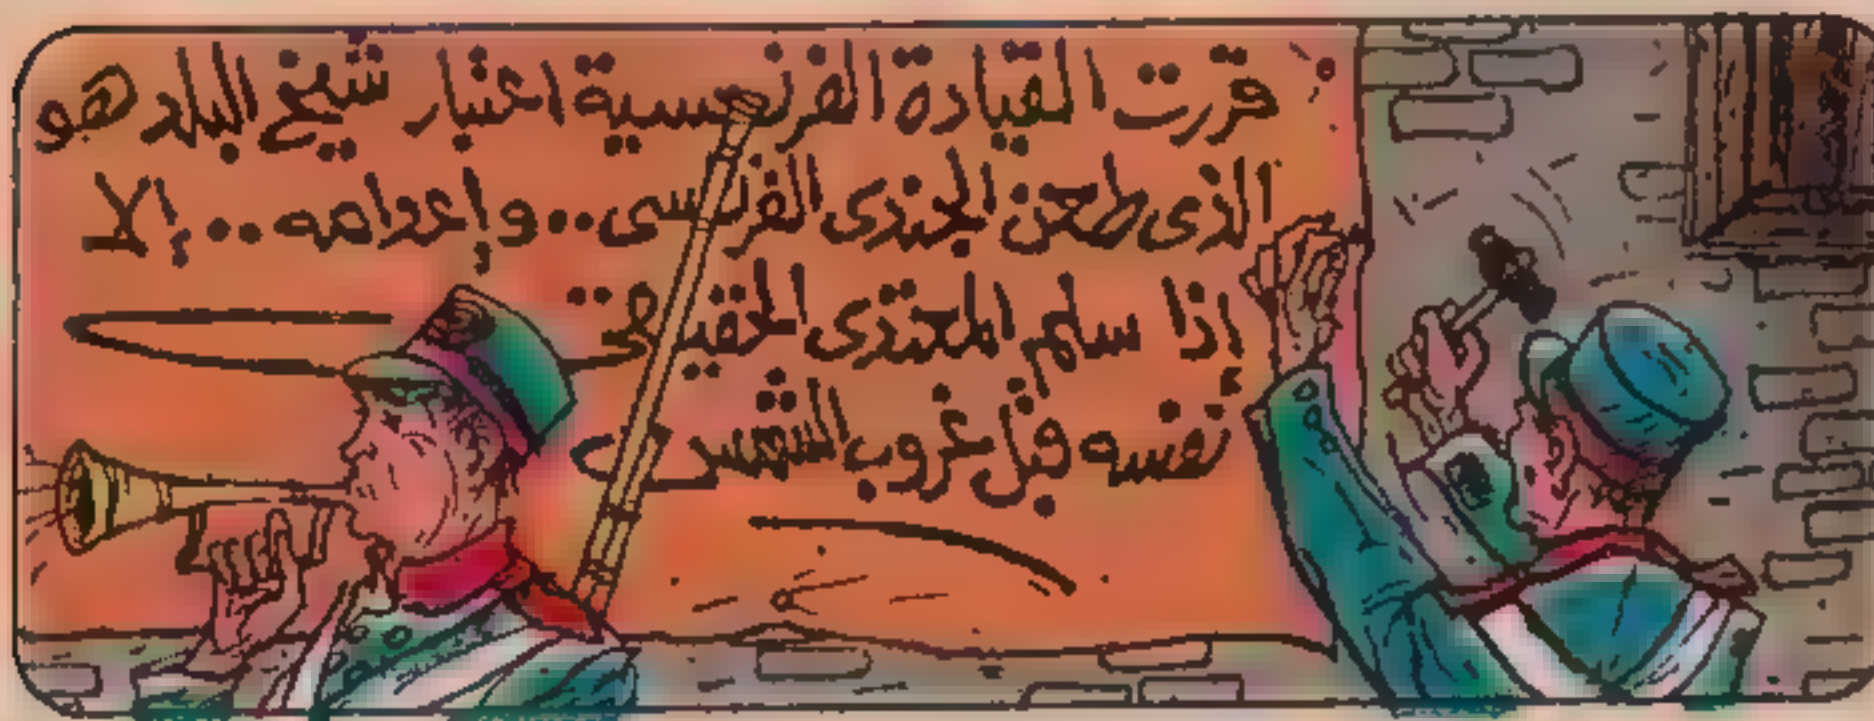 قررت القيادة الفرنسية اعتبار شيخ البلد هو
الذى طعن الجندى الفرنسى.. و إعدامه.. إلا
إذا سلم المعتدى الحقيقى
نفسه قبل غروب الشمس